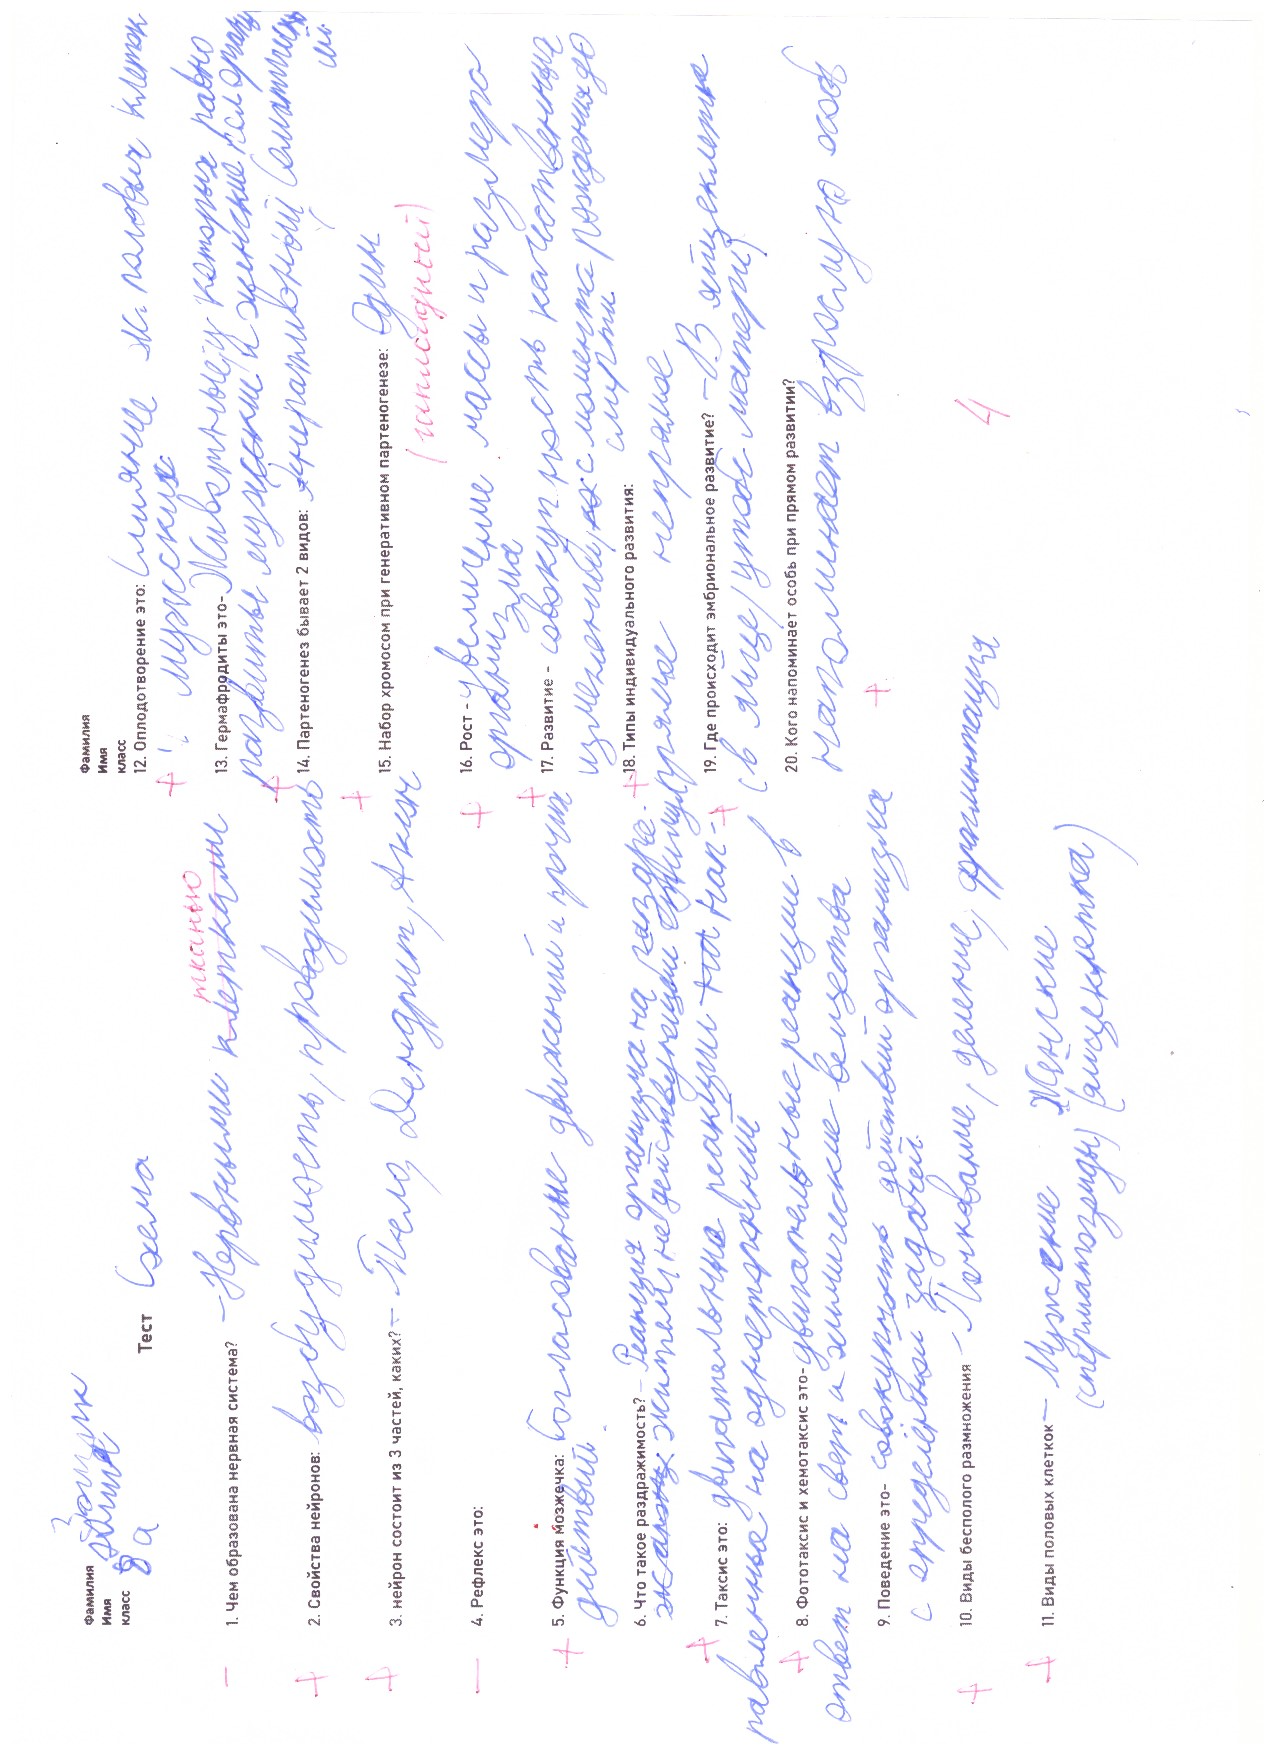 Фамилия
Имя
класс 8 а
Тест Схема
1. Чем образована нервная система? – Нервными клетками
тканью
2. Свойства нейронов: возбудимость, проводимость
3. нейрон состоит из 3 частей, каких? – Тело, Дендрит, Аксон
4. Рефлекс это:
5. Функция мозжечка: Согласование движений и прочих
действий.
6. Что такое раздражимость? – Реакция организма на раздре-
жители, не действующий
7. Таксис это: двигательные реакции нап-
равленные на одностороннии
8. Фототаксис и хемотаксис это- двигательные реакции в
ответ на свет и химические вещества
9. Поведение это- совокупность действий организма
с определённой задачей.
10. Виды бесполого размножения – Почкование, деление, фрагментация
11. Виды половых клеткок – Мужские Женские
(сперматозоиды) (яйцеклетка)
Фамилия
Имя
класс
12. Оплодотворение это: Слияние ж. половых клеток
и мужских
13. Гермафродиты это- Животные, у которых равно
развиты мужские и женские пол органы
14. Партеногенез бывает 2 видов: генеративный Соматический
15. Набор хромосом при генеративном партеногенезе: Один
(гаплоидный)
16. Рост - увеличение массы и размера
организма
17. Развитие - совокупность качественных
изменений с момента рождения до
смерти.
18. Типы индивидуального развития:
прямое непрямое
19. Где происходит эмбриональное развитие? – В яйцеклетке
(в яйце/утробе матери)
20. Кого напоминает особь при прямом развитии?
напоминает взрослую особь
4